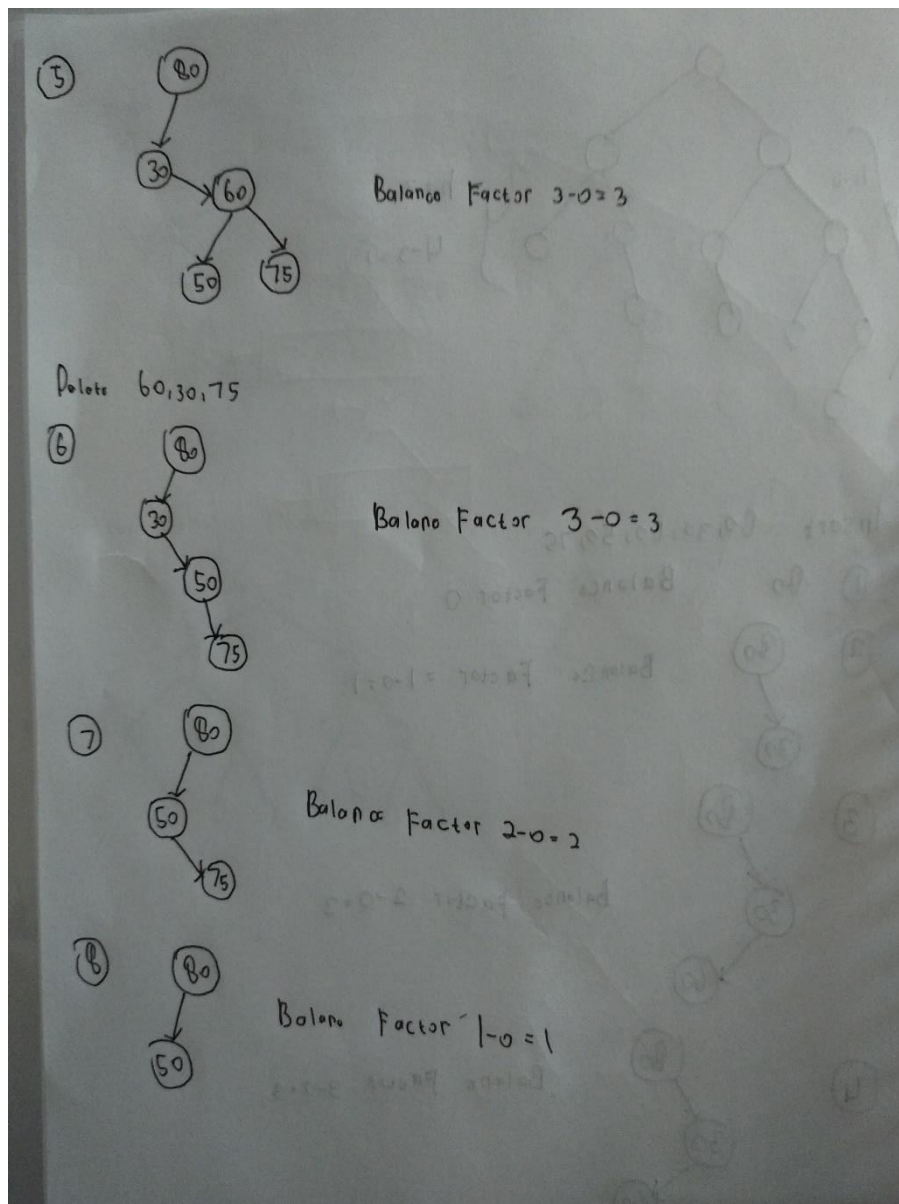 5
80
30 60
50 75
Balance Factor 3-0=3
Delete 60,30,75
6
80
30
50
75
Balanc Factor 3-0=3
7
80
50
75
Balance Factor 2-0=2
8
80
50
Balanc Factor 1-0=1